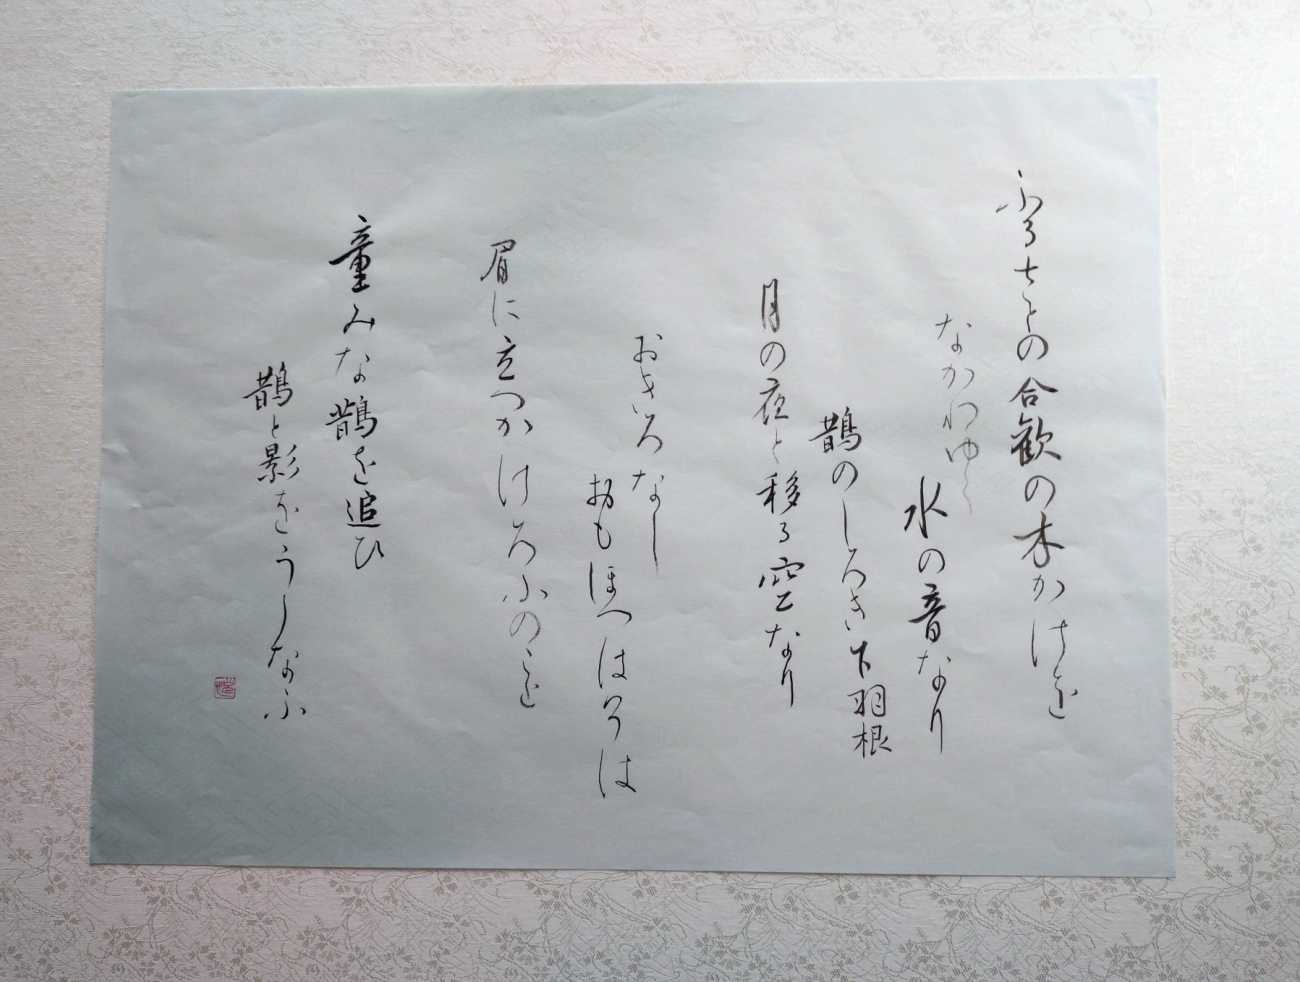 ふるさとの合歓の木かけを
なかれゆく
水の音なり
鵲のしろき下羽根
月の夜と移る空なり
おきろなし
おもほへはろは
眉に立つかけろふのこと
童みな鵲を追ひ
鵲と影をうしなふ